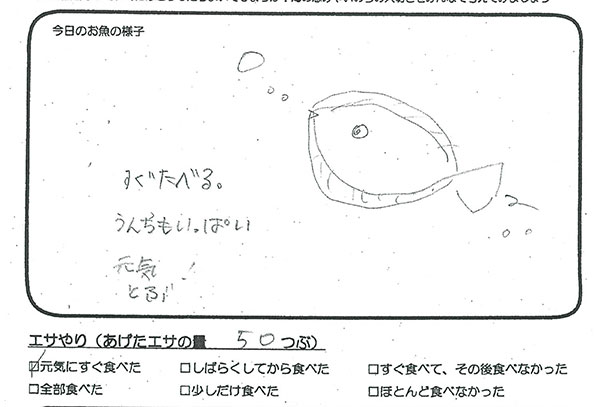 今日のお魚の様子
すぐたべる。
うんちもいっぱい
元気
エサやり（あげたエサの量 50つぶ）
☑元気にすぐ食べた □しばらくしてから食べた □すぐ食べて、その後食べなかった
□全部食べた □少しだけ食べた □ほとんど食べなかった